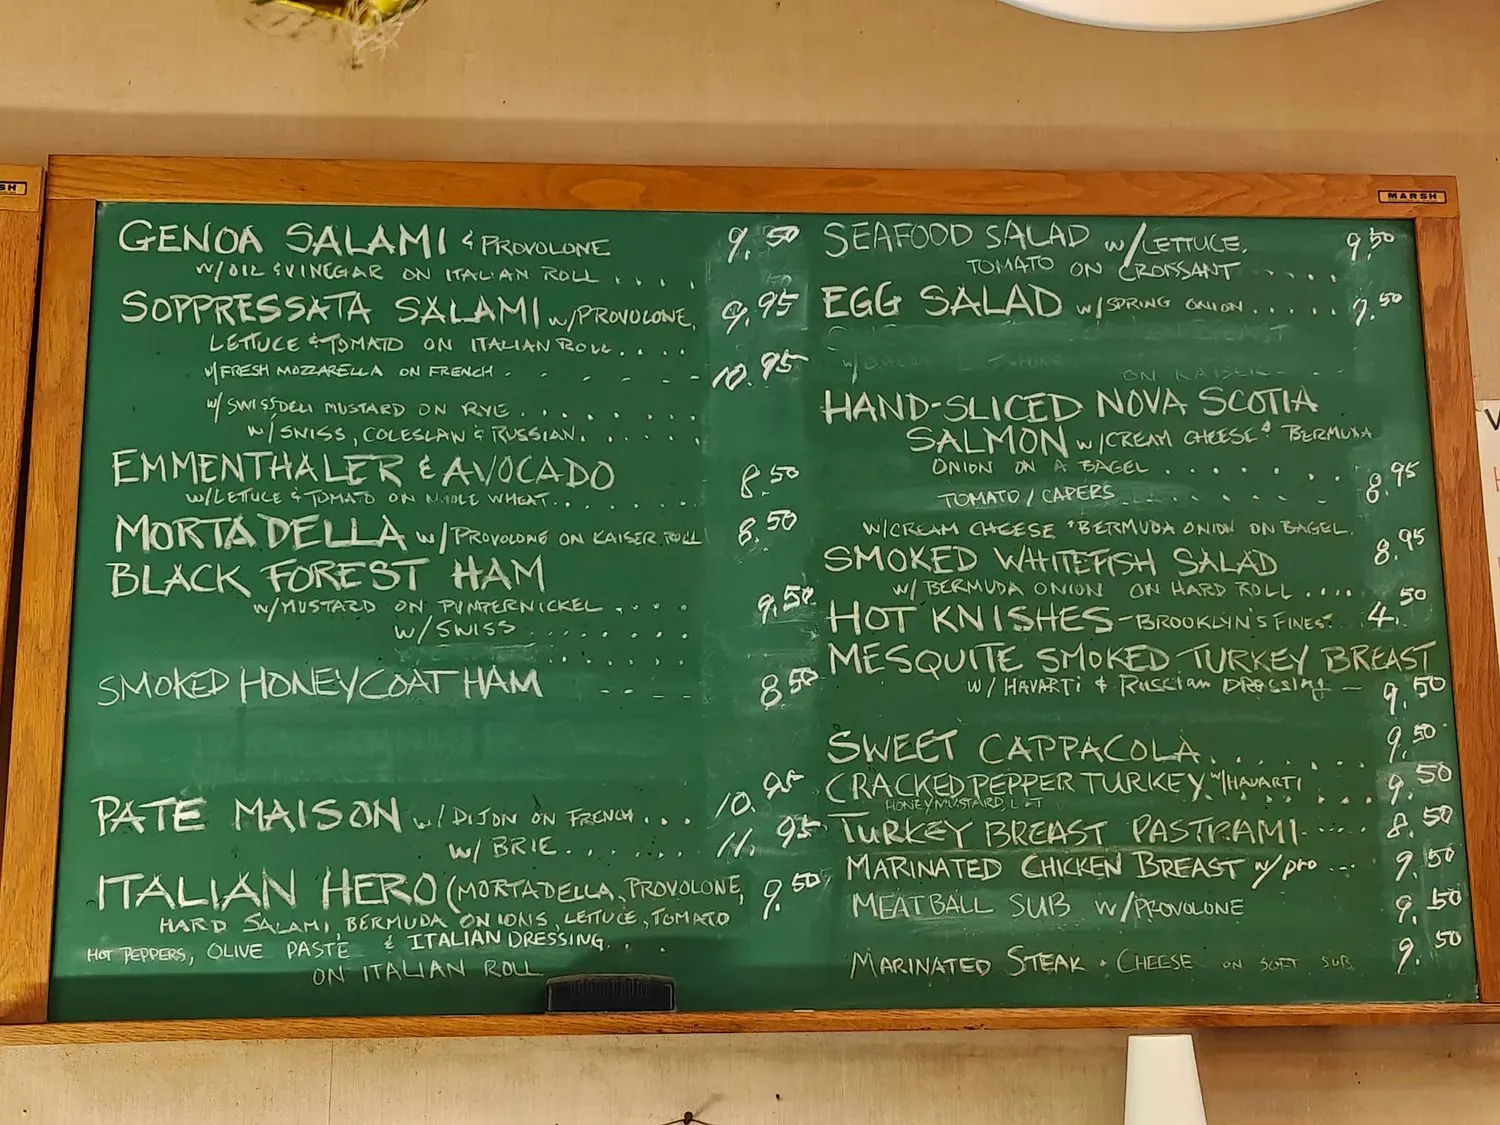 GENOA SALAMI & PROVOLONE 9.50
W/OIL & VINEGAR ON ITALIAN ROLL . . . .
SOPPRESSATA SALAMI W/PROVOLONE, 9.95
LETTUCE & TOMATO ON ITALIAN ROLL . . . .
W/FRESH MOZZARELLA ON FRENCH . - . - - - - 10.95
W/SWISS DELI MUSTARD ON RYE . . . . . . .
W/SWISS, COLESLAW & RUSSIAN . . . . . .
EMMENTHALER & AVOCADO 8.50
W/LETTUCE & TOMATO ON WHOLE WHEAT . . . . . .
MORTADELLA W/PROVOLONE ON KAISER ROLL 8.50
BLACK FOREST HAM
W/MUSTARD ON PUMPERNICKEL . . . . 9.50
W/SWISS . . . . . . . .
SMOKED HONEYCOAT HAM - - - - 8.50
PATE MAISON W/DIJON ON FRENCH . . . 10.
W/ BRIE . . . . . . 11.95
ITALIAN HERO (MORTADELLA, PROVOLONE, 9.50
HARD SALAMI, BERMUDA ONIONS, LETTUCE, TOMATO
HOT PEPPERS, OLIVE PASTE & ITALIAN DRESSING . . .
ON ITALIAN ROLL
SEAFOOD SALAD W/LETTUCE, 9.50
TOMATO ON CROISSANT . . . . .
EGG SALAD W/SPRING ONION . . . . . 9.50
ON KAISER
HAND-SLICED NOVA SCOTIA
SALMON W/CREAM CHEESE & BERMUDA
ONION ON A BAGEL . . . . . . .
TOMATO / CAPERS . . . . . . . 8.95
W/CREAM CHEESE & BERMUDA ONION ON BAGEL.
SMOKED WHITEFISH SALAD 8.95
W/ BERMUDA ONION ON HARD ROLL . . . .
HOT KNISHES - BROOKLYN'S FINEST 4.50
MESQUITE SMOKED TURKEY BREAST
W/ HAVARTI & RUSSIAN DRESSING - 9.50
SWEET CAPPACOLA . . . . . . . 9.50
CRACKED PEPPER TURKEY W/HAVARTI 9.50
HONEY MUSTARD, L & T
TURKEY BREAST PASTRAMI . . . . 8.50
MARINATED CHICKEN BREAST W/pro - - - 9.50
MEATBALL SUB W/PROVOLONE 9.50
MARINATED STEAK & CHEESE ON SOFT SUB 9.50
MARSH